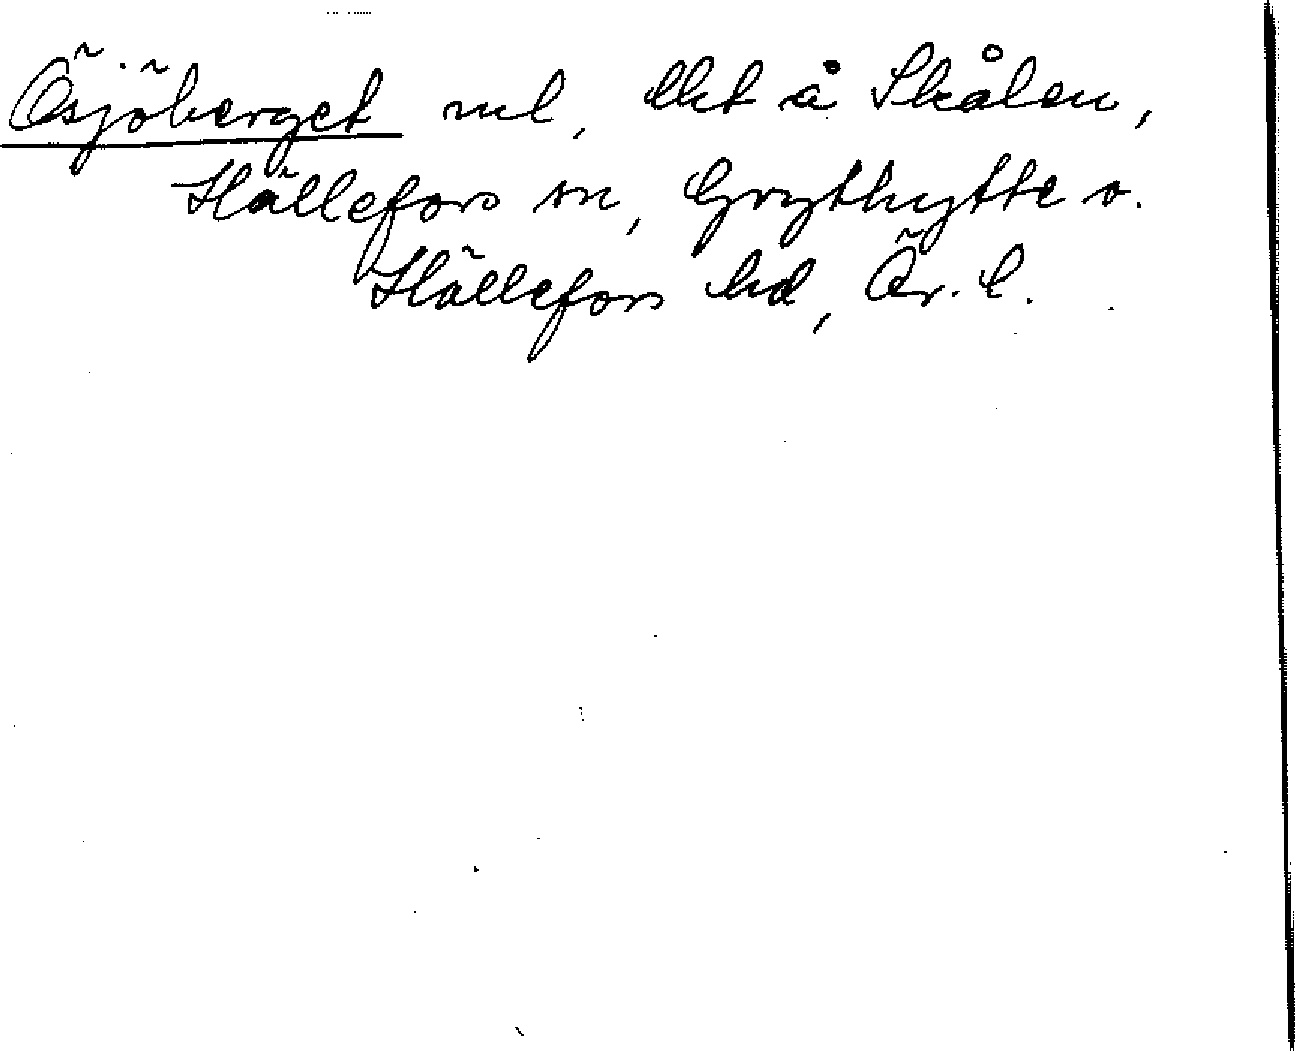 Ösjöberget ml, lht å Skålen,
Hällefors sn, Grythytte o.
Hällefors hd, Ör. l.